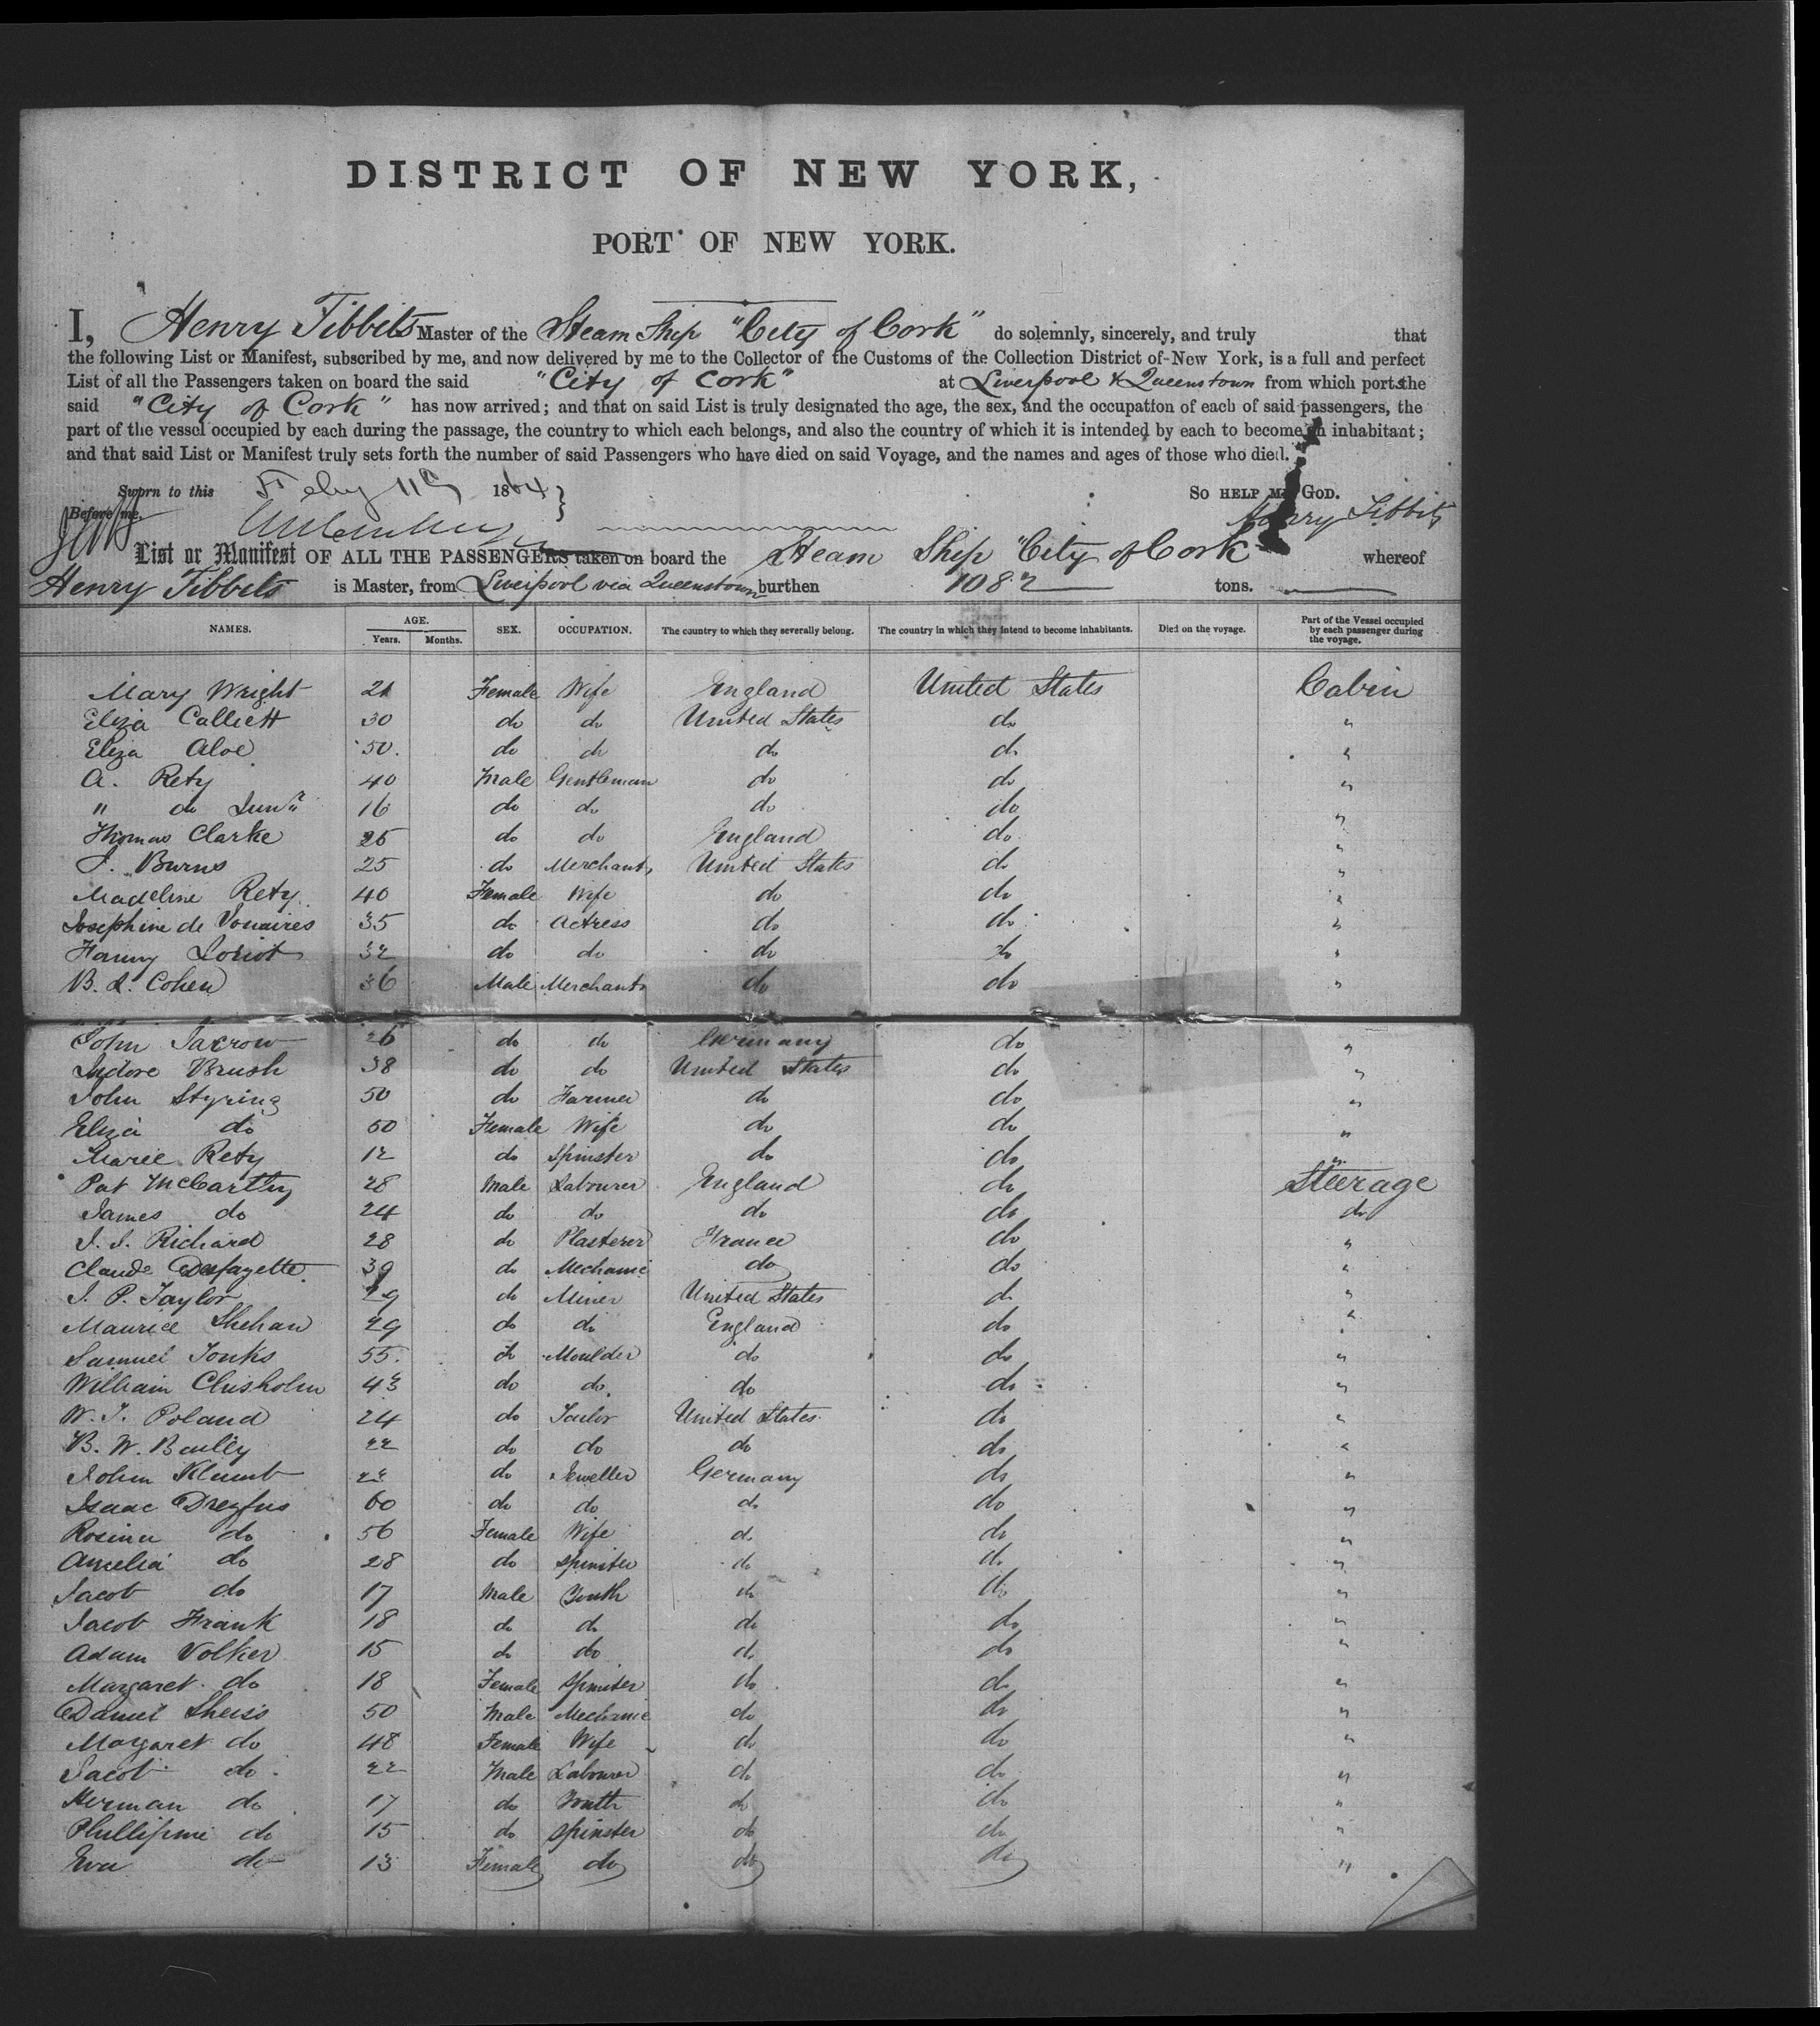 DISTRICT OF NEW YORK,
PORT OF NEW YORK.
I, Henry Tibbits Master of the Steam Ship "City of Cork" do solemnly, sincerely, and truly that
the following List or Manifest, subscribed by me, and now delivered by me to the Collector of the Customs of the Collection District of New York, is a full and perfect
List of all the Passengers taken on board the said "City of Cork" at Liverpool & Queenstown from which ports the
said "City of Cork" has now arrived; and that on said List is truly designated the age, the sex, and the occupation of each of said passengers, the
part of the vessel occupied by each during the passage, the country to which each belongs, and also the country of which it is intended by each to become an inhabitant;
and that said List or Manifest truly sets forth the number of said Passengers who have died on said Voyage, and the names and ages of those who died.
Sworn to this Feby 11th 1864 } SO HELP ME GOD.
Before me. Henry Tibbits
List or Manifest OF ALL THE PASSENGERS taken on board the Steam Ship "City of Cork whereof
Henry Tibbits is Master, from Liverpool via Queenstown burthen 1082 tons.
NAMES. AGE. Years. Months. SEX. OCCUPATION. The country to which they severally belong. The country in which they intend to become inhabitants. Died on the voyage. Part of the Vessel occupied by each passenger during the voyage.
Mary Wright 21 Female Wife England United States Cabin
Eliza Calliett 30 do do United States do "
Eliza Aloe 50. do do do do "
A. Rety 40 Male Gentleman do do "
" do Junr 16 do do do do "
Thomas Clarke 25 do do England do "
J. Burns 25 do Merchants United States do "
Madeline Rety 40 Female Wife do do "
Josephine de Vonaires 35 do Actress do do "
Fanny Loriot 32 do do do do "
B. L. Cohen 36 Male Merchants do do "
John Jacrow 26 do do Germany do "
Isidore Brush 38 do do United States do "
John Styring 50 do Farmer do do "
Eliza do 50 Female Wife do do "
Marie Rety 12 do Spinster do do "
Pat McCarthy 28 Male Labourer England do Steerage
James do 24 do do do do do
J. J. Richard 28 do Plasterer France do "
Claude Desfayette 39 do Mechanic do do "
J. P. Taylor 29 do Miner United States do "
Maurice Shehan 29 do do England do "
Samuel Tonks 55. do Moulder do do "
William Chisholm 43 do do do do "
W. T. Poland 24 do Tailor United States do "
B. W. Bailey 22 do do do do "
John Klumb 22 do Jeweller Germany do "
Isaac Dreyfus 60 do do do do "
Rosina do 56 Female Wife do do "
Amelia do 28 do Spinster do do "
Jacob do 17 Male Youth do do "
Jacob Frank 18 do do do do "
Adam Volker 15 do do do do "
Margaret do 18 Female Spinster do do "
Daniel Sheiss 50 Male Mechanic do do "
Margaret do 48 Female Wife do do "
Jacob do 22 Male Labourer do do "
Herman do 17 do Youth do do "
Phillipine do 15 do Spinster do do "
Eva do 13 Female do do do "